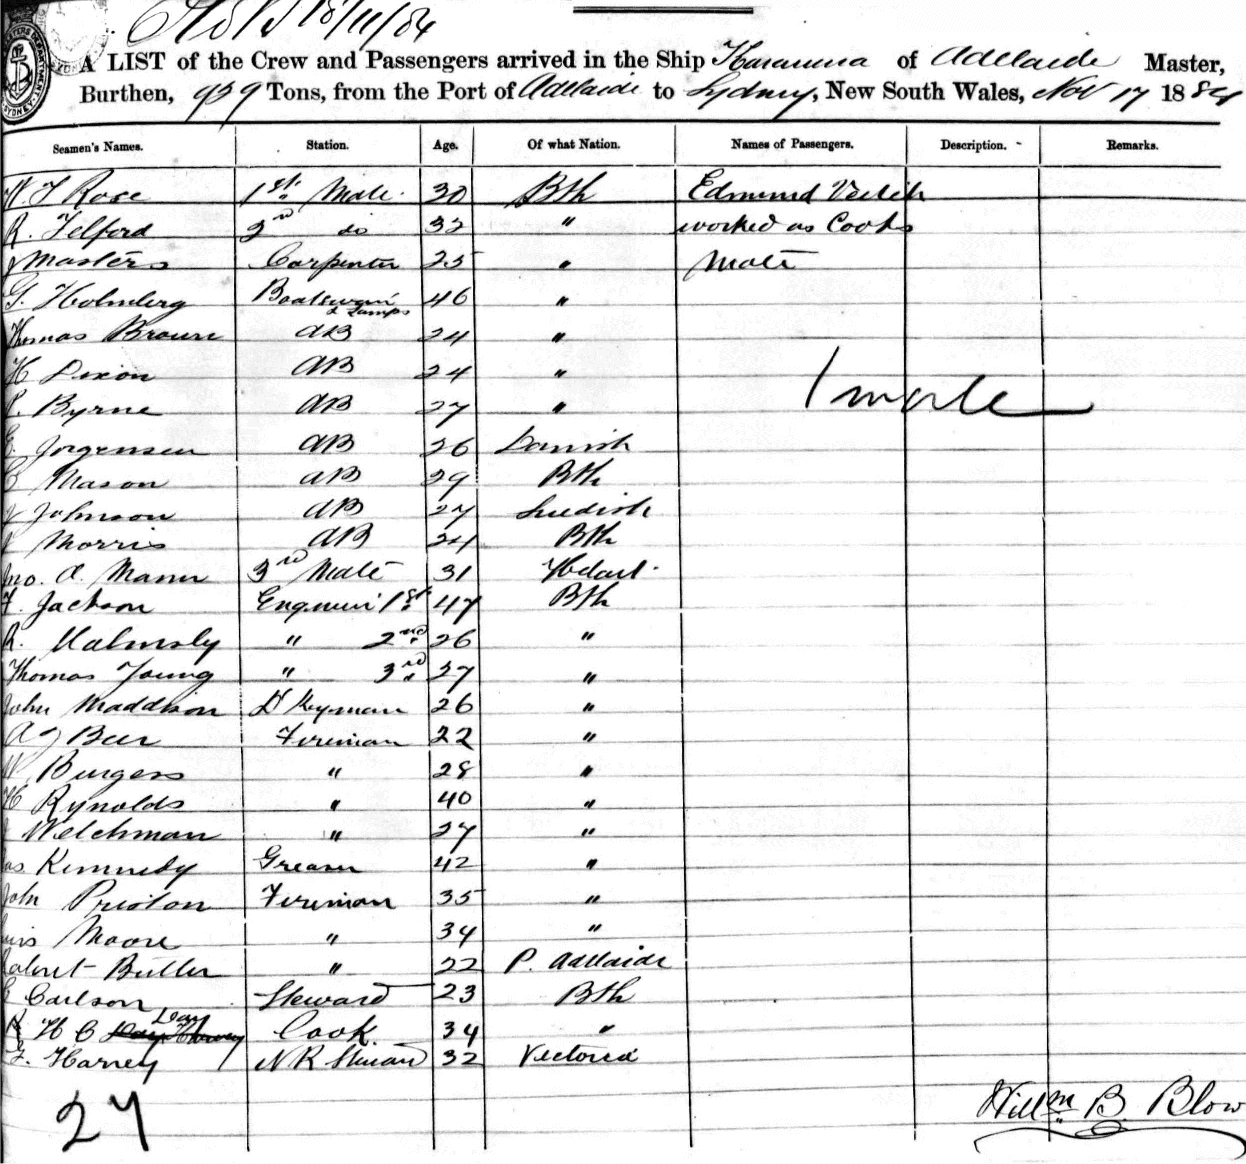 18/11/84
A LIST of the Crew and Passengers arrived in the Ship of Adelaide Master,
Burthen, 939 Tons, from the Port of Adelaide to Sydney, New South Wales, Nov 17 1884
Seamen's Names. Station. Age. Of what Nation. Names of Passengers. Description. Remarks.
W. J Rose 1st Mate 30 Bth Edmund Veitch
R. Telford 2nd do 32 " worked as Cooks
J Masters Carpenter 25 " Mate
G. Holmberg Boatswain & Lamps 46 "
Thomas Brown AB 24 "
H Dixon AB 24 "
Byrne AB 27 " 1 male
Jorgensen AB 26 Danish
Mason AB 29 Bth
Johnson AB 27 Swedish
Morris AB 24 Bth
Jno. A. Mann 3rd Mate 31 Hobart
F. Jackson Engineer 1st 47 Bth
R. Walmsly " 2nd 26 "
Thomas Young " 3rd 27 "
John Maddison Dkeyman 26 "
A J Beer Fireman 22 "
W Burgess " 28 "
H Rynolds " 40 "
J Welchman " 27 "
as Kennedy Greaser 42 "
John Prioton Fireman 35 "
Moore " 34 "
Robert Butler " 22 P. Adelaide
Carlson Steward 23 Bth
H C Day Cook 34 "
F. Harvey Steward 32 Victoria
27
Willm B Blow